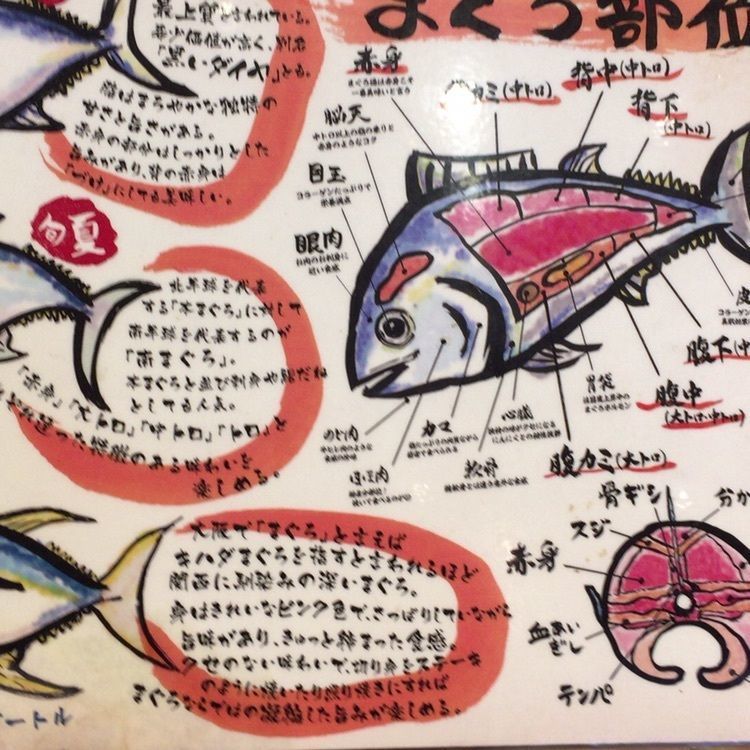 まぐろ部位
最上質とされている。
希少価値が高く、別名
「黒いダイヤ」とも。
脂はまろやかな独特の
甘さと旨さがある。
赤身の部分はしっかりとした
旨みがあり、背の赤身は
「づけ」にしても美味しい。
旬 夏
北半球を代表
する「本まぐろ」に対して
南半球を代表するのが
「南まぐろ」。
本まぐろと並び刺身や鮨だね
としても人気。
「赤身」「大トロ」「中トロ」「トロ」と
違った特徴のある味わいを
楽しめる。
大阪で「まぐろ」と言えば
キハダまぐろを指すと言われるほど
関西に馴染みの深いまぐろ。
身はきれいなピンク色で、さっぱりしていながら
旨味があり、きゅっと締まった食感。
クセのない味わいで、切り身をステーキ
のように焼いたり照り焼きにすれば
まぐろならではの凝縮した旨みが楽しめる。
ートル
赤身
カミ(中トロ)
背中(中トロ)
背下
(中トロ)
脳天
目玉
コラーゲンたっぷりで
栄養満点
眼肉
お肉のお刺身に
近い食感
のど肉
ほほ肉
カマ
軟骨
心臓
胃袋
腹カミ(大トロ)
腹中
(大トロ・中トロ)
腹下(中ト
皮
コラーゲン
骨ギシ
分か
スジ
赤身
血あい
ぎし
テンパ